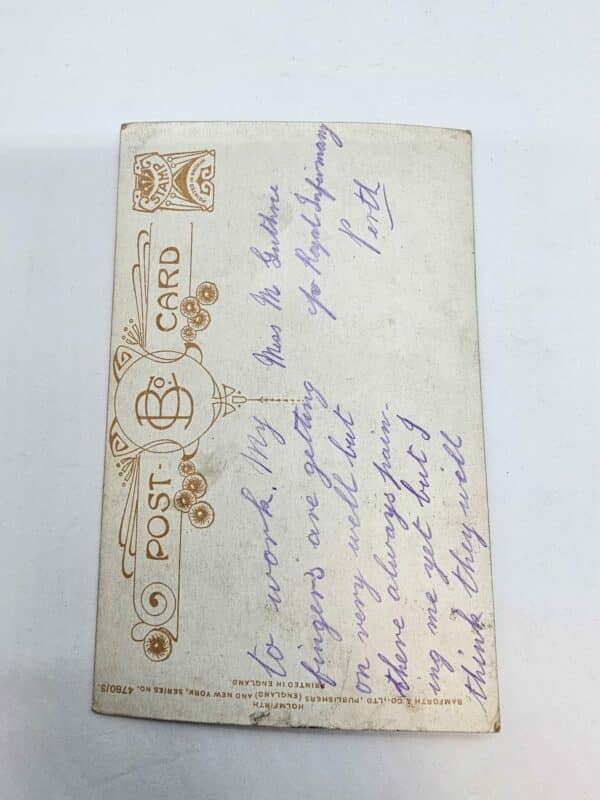 POST-CARD
B Co
STAMP
to work. My
fingers are getting
on very well but
there always pain-
ing me yet but I
think they will
Miss M Guthrie
c/o Royal Infirmary
Perth
BAMFORTH & CO., LTD, PUBLISHERS (ENGLAND) AND NEW YORK, SERIES NO. 4780/3.
HOLMFIRTH
PRINTED IN ENGLAND